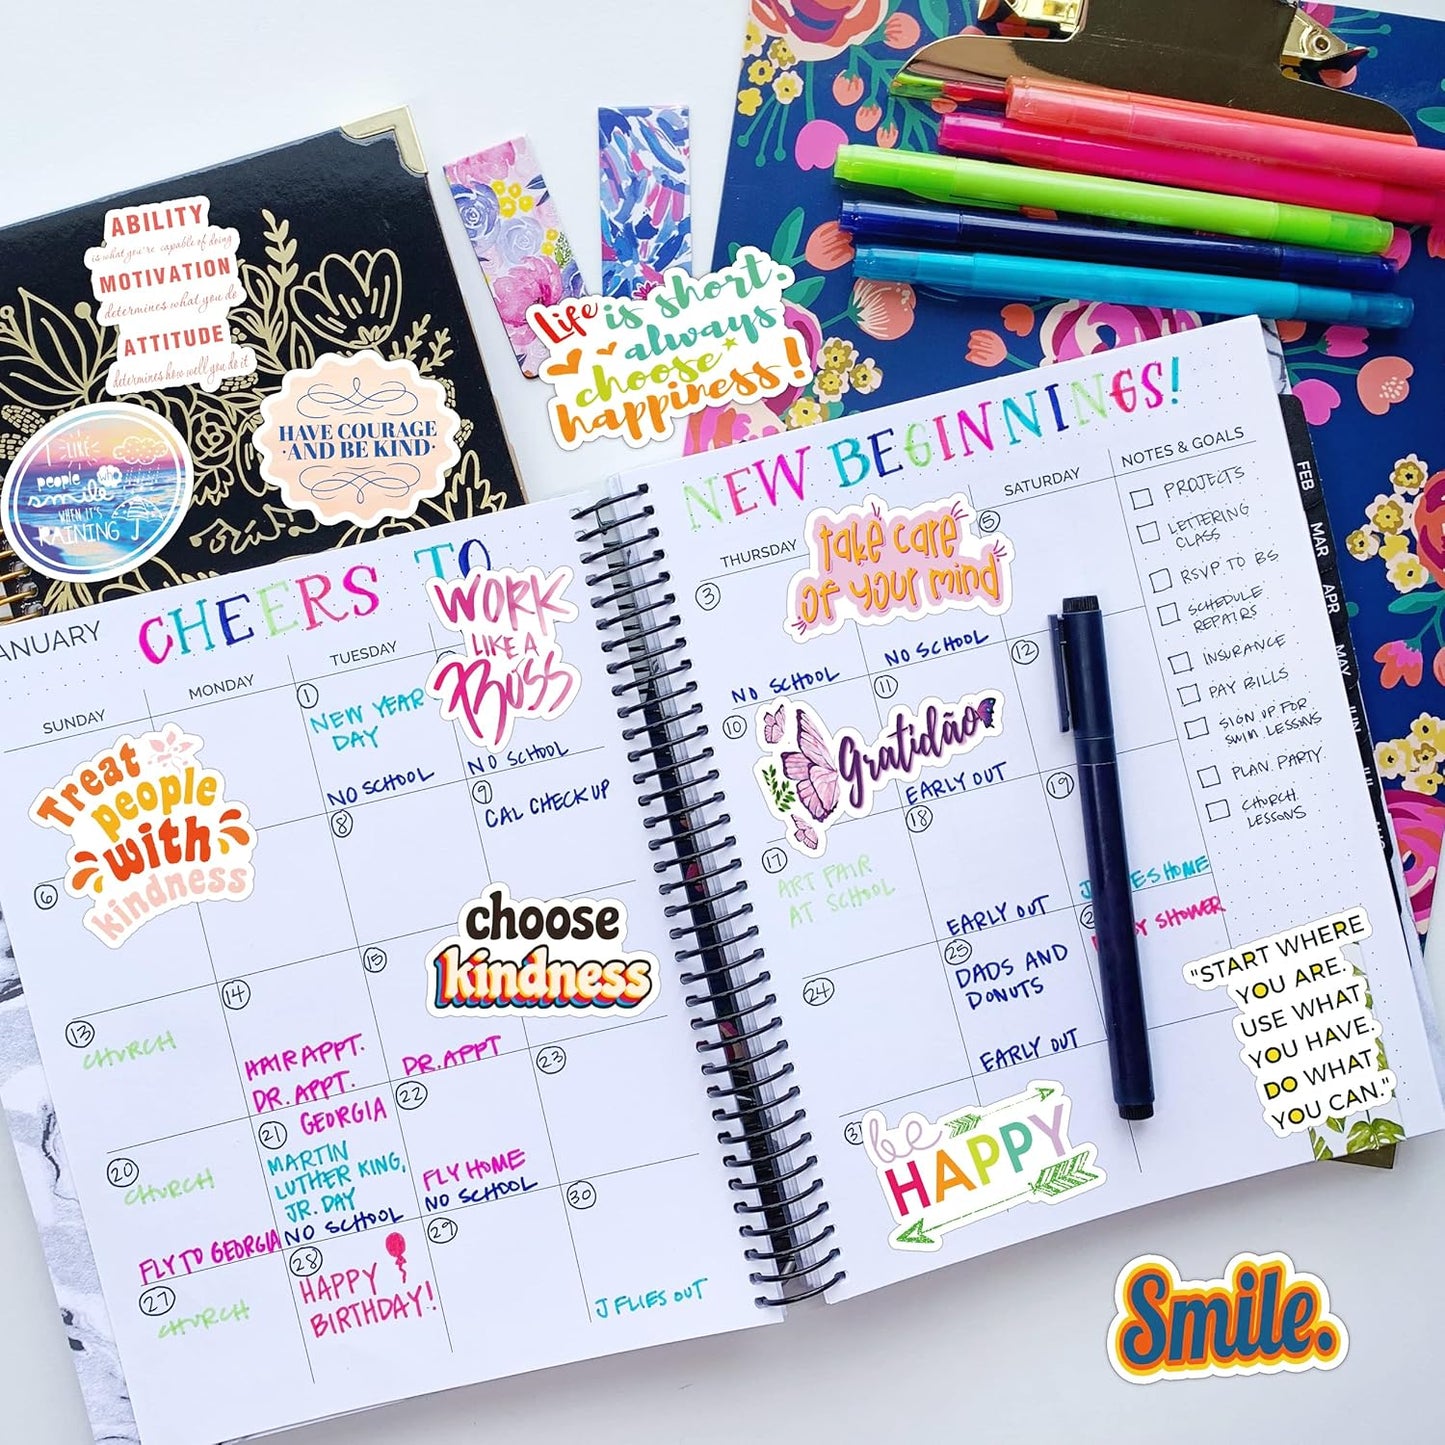 ABILITY
is what you're capable of doing
MOTIVATION
determines what you do
ATTITUDE
determines how well you do it
HAVE COURAGE
·AND BE KIND·
I LIKE
people WHO
smile
WHEN IT'S
RAINING
Life is short.
always
choose
happiness!
ANUARY
CHEERS TO
NEW BEGINNINGS!
WORK
LIKE A
BOSS
SUNDAY
MONDAY
TUESDAY
THURSDAY
SATURDAY
NOTES & GOALS
1
NEW YEAR
DAY
NO SCHOOL
NO SCHOOL
Treat
people
with
kindness
6
8
9
CAL CHECK UP
choose
kindness
13
CHURCH
14
HAIR APPT.
DR. APPT.
15
DR. APPT
20
CHURCH
FLY TO GEORGIA
GEORGIA
21
MARTIN
LUTHER KING,
JR. DAY
NO SCHOOL
22
FLY HOME
NO SCHOOL
23
27
CHURCH
28
HAPPY
BIRTHDAY!
29
30
J FLIES OUT
3
NO SCHOOL
take care
of your mind
NO SCHOOL
5
10
Gratidão
11
EARLY OUT
12
17
ART FAIR
AT SCHOOL
18
EARLY OUT
19
ES HOME
SHOWER
24
25
DADS AND
DONUTS
EARLY OUT
31
be
HAPPY
PROJECTS
LETTERING
CLASS
RSVP TO BS
SCHEDULE
REPAIRS
INSURANCE
PAY BILLS
SIGN UP FOR
SWIM LESSONS
PLAN PARTY
CHURCH
LESSONS
FEB
MAR
APR
MAY
JUN
JUL
"START WHERE
YOU ARE.
USE WHAT
YOU HAVE.
DO WHAT
YOU CAN."
Smile.